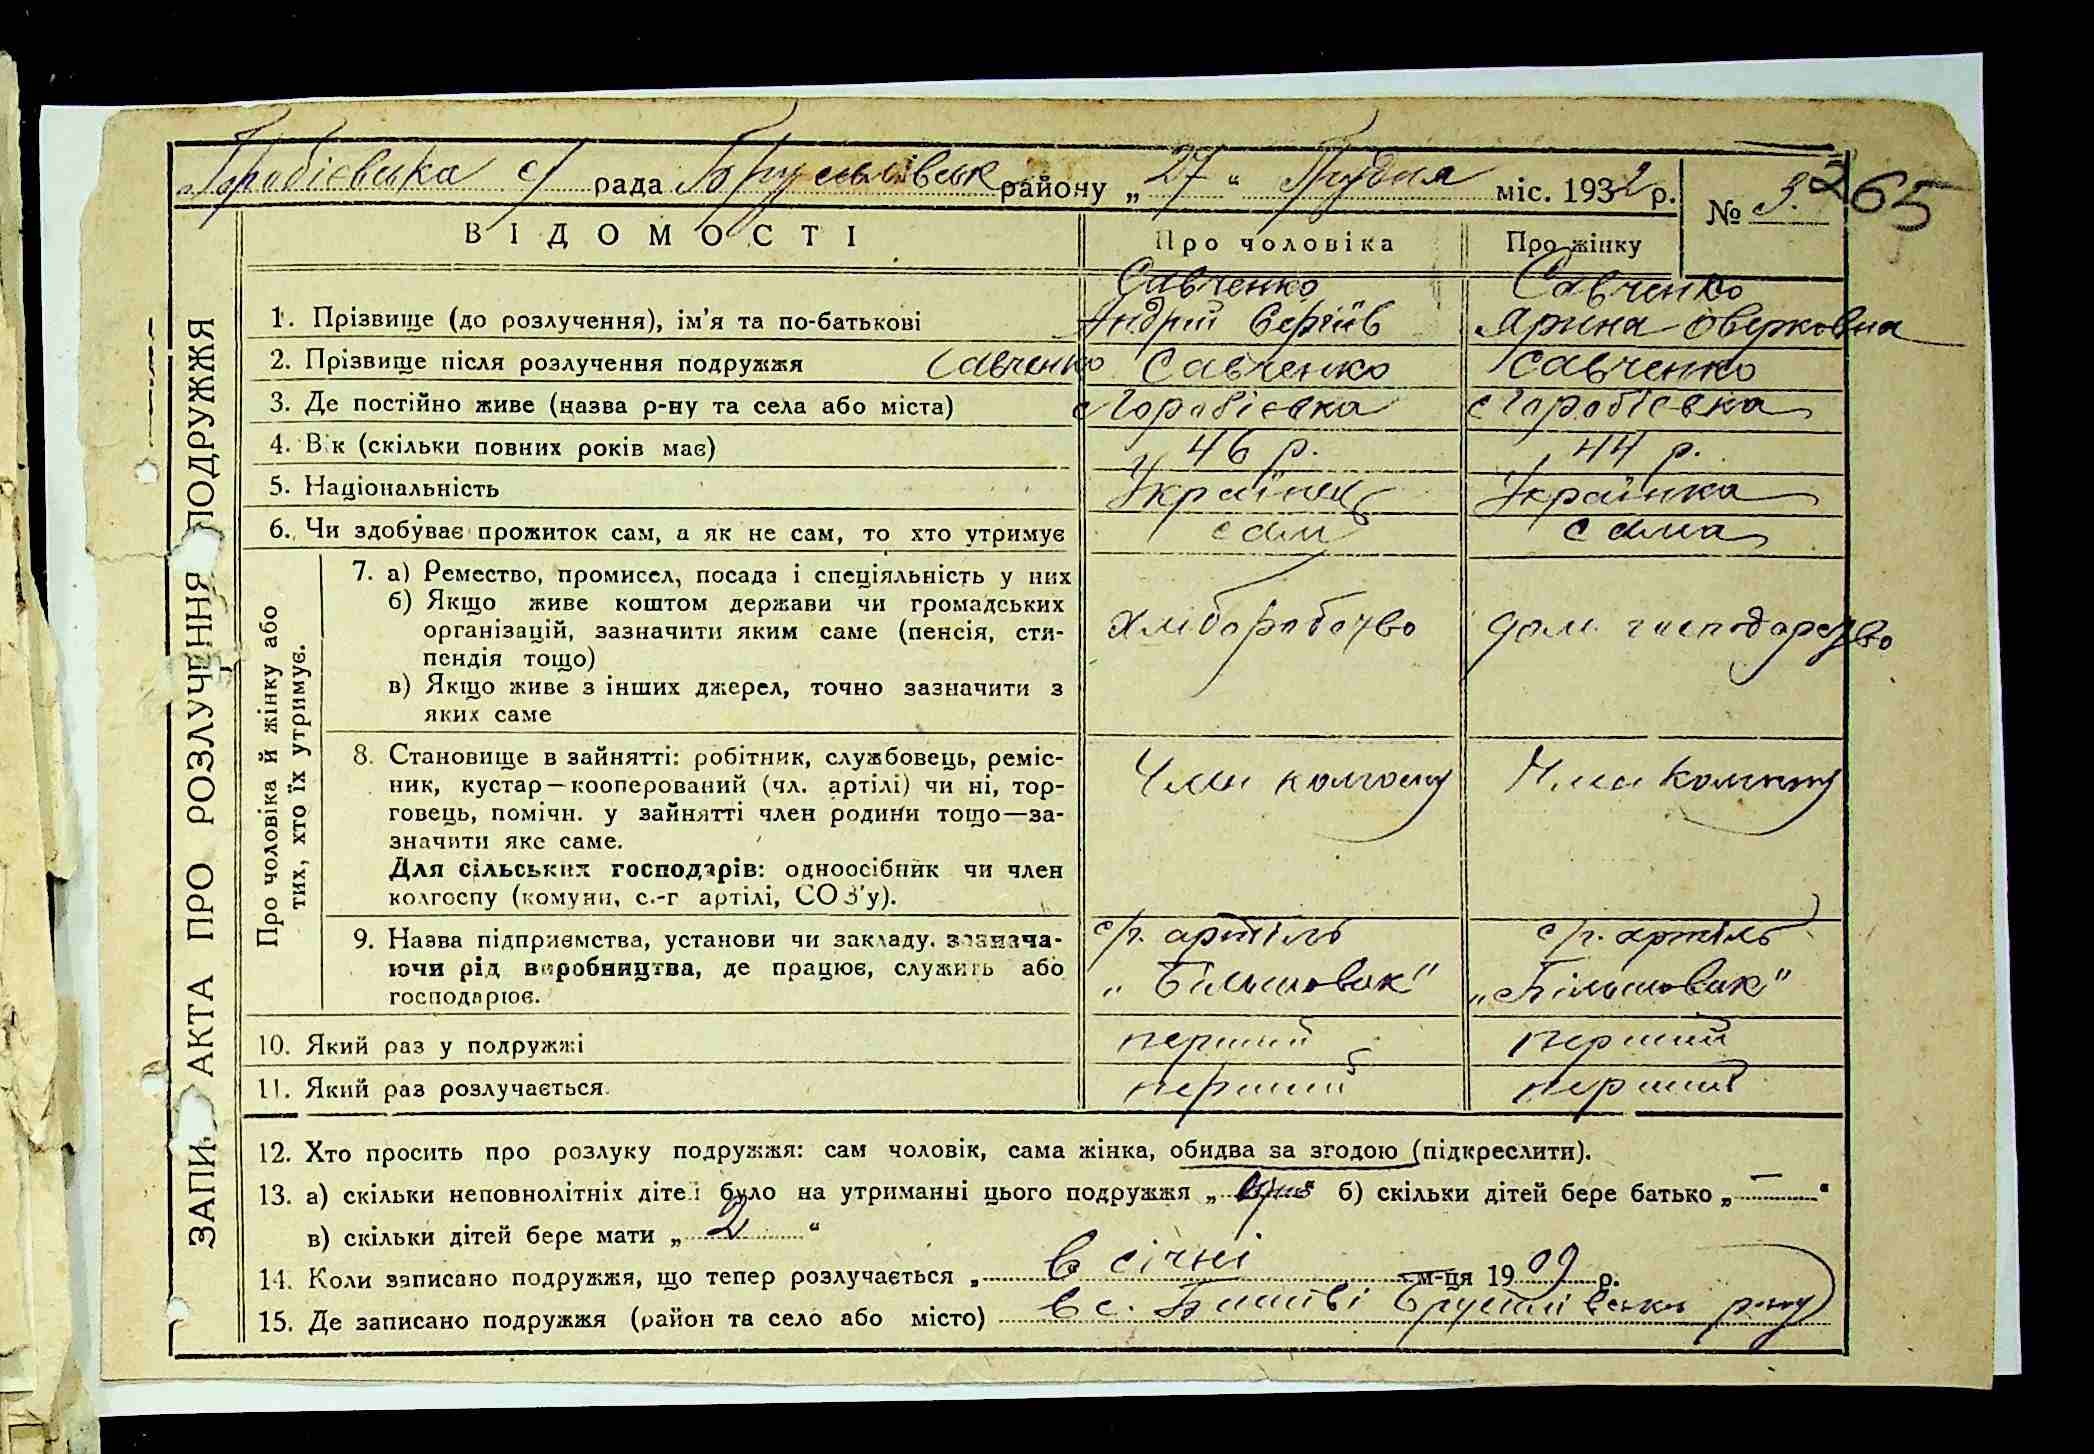 Горобієвська с/ рада Брусилівськ району „27“ Грудня міс. 1932 р.
№ 3.
265
ВІДОМОСТІ
Про чоловіка
Про жінку
ЗАПИ АКТА ПРО РОЗЛУЧЕННЯ ПОДРУЖЖЯ
1. Прізвище (до розлучення), ім’я та по-батькові
Савченко Андрій Сергіїв
Савченко Ярина Оверковна
2. Прізвище після розлучення подружжя Савченко
Савченко
Савченко
3. Де постійно живе (назва р-ну та села або міста)
с Горобієвка
с Горобієвка
4. Вік (скільки повних років має)
46 р.
44 р.
5. Національність
Українец
Українка
6. Чи здобуває прожиток сам, а як не сам, то хто утримує
сам
сама
Про чоловіка й жінку або
тих, хто їх утримує.
7. а) Ремество, промисел, посада і спеціяльність у них
б) Якщо живе коштом держави чи громадських
організацій, зазначити яким саме (пенсія, сти-
пендія тощо)
в) Якщо живе з інших джерел, точно зазначити з
яких саме
хліборобство
дом. господарство
8. Становище в зайнятті: робітник, службовець, реміс-
ник, кустар—кооперований (чл. артілі) чи ні, тор-
говець, помічн. у зайнятті член родини тощо—за-
значити яке саме.
Для сільських господарів: одноосібник чи член
колгоспу (комуни, с.-г артілі, СОЗ’у).
Член колгоспу
Член колгоспу
9. Назва підприємства, установи чи закладу, зазнача-
ючи рід виробництва, де працює, служить або
господарює.
с/г. артіль
„Більшовик“
с/г. артіль
„Більшовик“
10. Який раз у подружжі
перший
перший
11. Який раз розлучається
перший
перший
12. Хто просить про розлуку подружжя: сам чоловік, сама жінка, обидва за згодою (підкреслити).
13. а) скільки неповнолітніх дітей було на утриманні цього подружжя „ “ б) скільки дітей бере батько „—“
в) скільки дітей бере мати „2“
14. Коли записано подружжя, що тепер розлучається „ в січні м-ця 1909 р.
15. Де записано подружжя (район та село або місто) в с. Брусилівськ р-ну